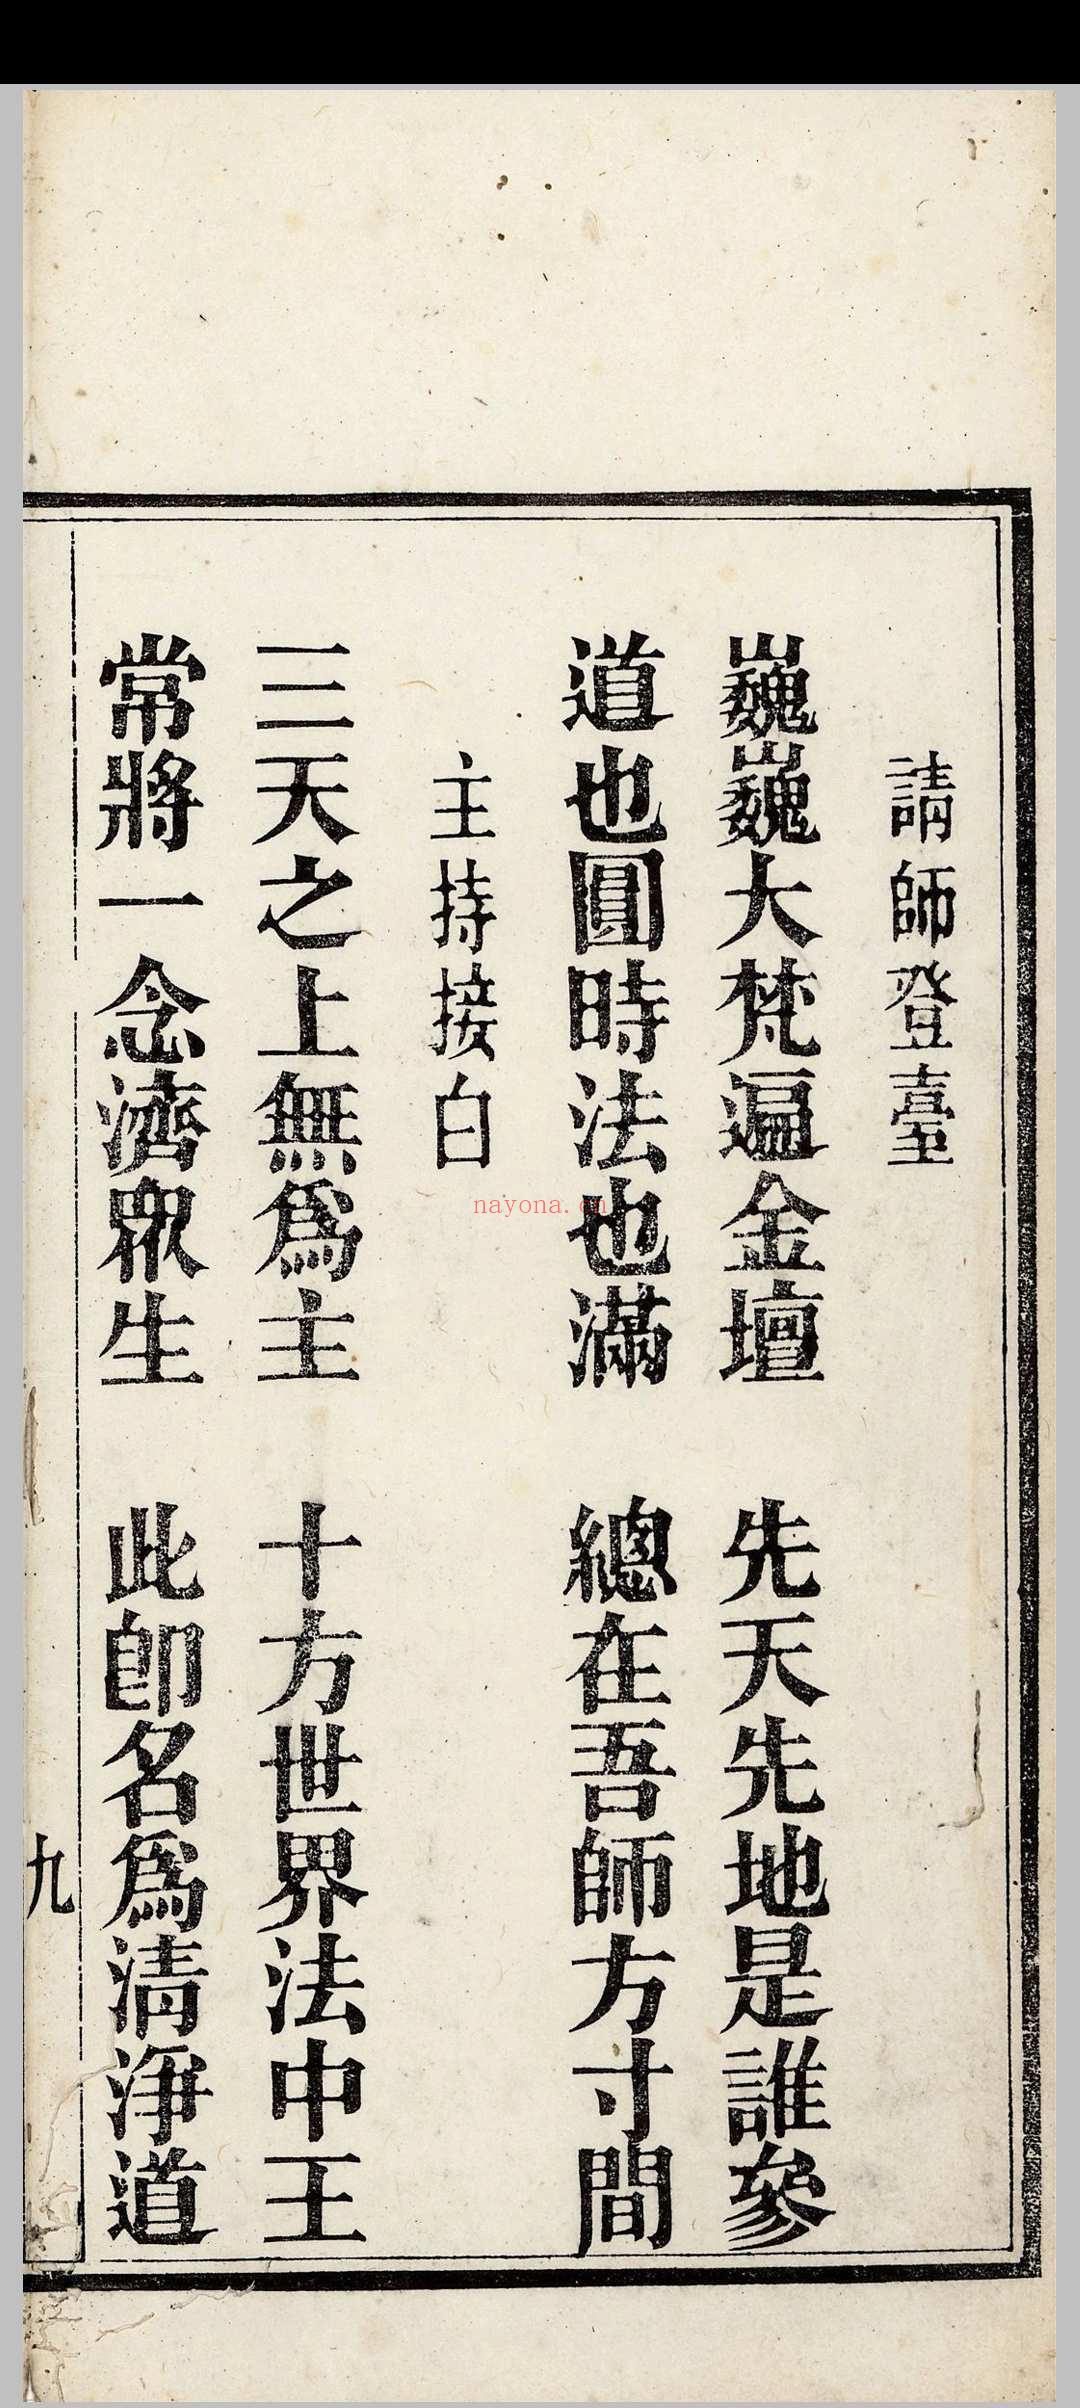 請師登臺
巍巍大梵遍金壇　先天先地是誰參
道也圓時法也滿　總在吾師方寸間
主持接白
三天之上無爲主　十方世界法中王
常將一念濟眾生　此卽名爲淸淨道
九
nayona.cn